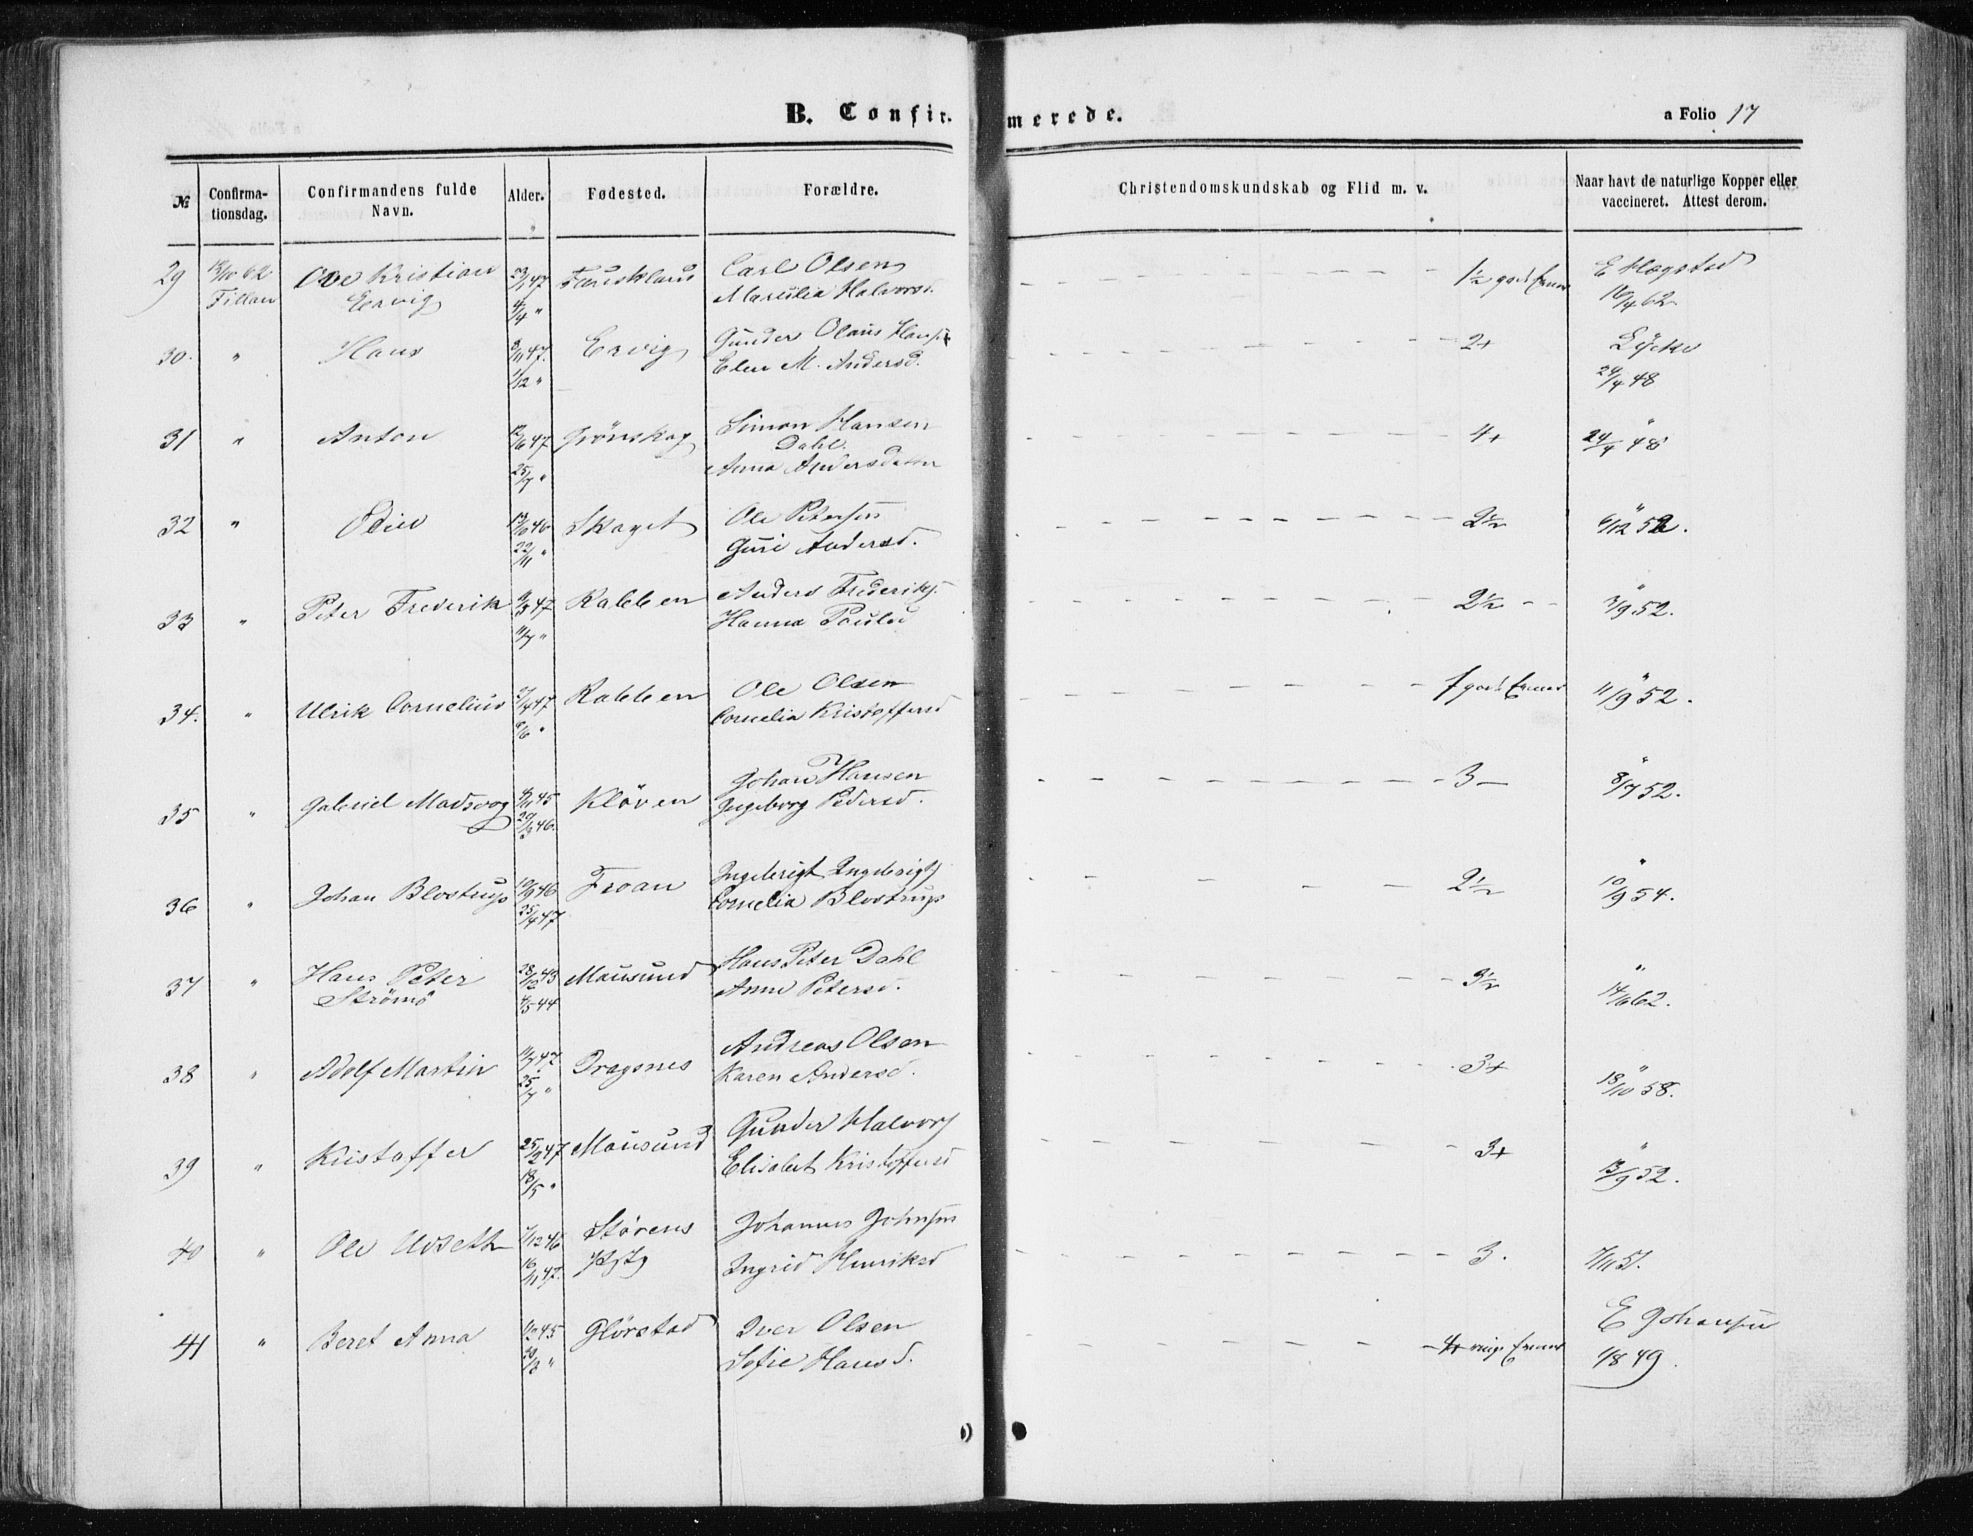 B. Confirmerede.
a Folio 17
№ Confirmationsdag. Confirmandens fulde Navn. Alder. Fødested. Forældre. Christendomskundskab og Flid m. v. Naar havt de naturlige Kopper eller vaccineret. Attest derom.
29 12/10 62 Ole Kristian 23/1 47 Carl Olsen 1½ god E Hægstad
Fillan Ervig 4/4 " 16/4 62.
30. " Hans 3/11 47. Ervig Gunder Olaus Hans 2+ Lycke
1/12 " Elen M. Andersd. 24/4 48
31 " Anton 12/6 47 Grönskag Simon Hansen 4+ "
Dahl. 24/4 48
25/7 " Anna Andersdatter
32 " 13/10 46 Skaget Ole Petersen 2½ "
22/11 " Guri Andersd. 6/12 52.
33 " Peter Frederik 47 Rabben Anders Frederiks 2½ "
11/7 " Hanna Paulsd 7/9 52.
34. " Ulrik Cornelius 47 Rabben Ole Olsen 1 god "
/6 " Cornelia Kristoffersd 11/9 52.
35 " Gabriel Madsvog 4/11 45 Kløven Johan Hansen 3 "
46. Ingeborg Pedersd. 8/7 52.
36 " Johan Blostrup 19/9 46 Froan Ingebrigt Ingebrigts 2½ "
25/4 47 Cornelia Blostrup 10/9 54.
37 " Hans Peter 28/12 43 Mausund Hans Peter Dahl 3½ "
Strömö 4/5 44 Anne Petersd. 14/6 62.
38 " Adolf Martin 11/7 47 Dragsnes Andreas Olsen 3+ "
25/7 " Karen Andersd. 13/10 58.
39 " Kristoffer 25/2 47 Mausund Gunder Halvors 3+ "
18/5 " Elisabet Kristoffersd 13/9 52.
40 " Ole Udseth 1/12 46 Størens Johannes Johnsen 3. 7/11 51.
16/1 47. Pgtg Ingrid Henriksd
41 " Beret Anna 45 Glörstad Iver Olsen 4+ E Johansen
" Sofie Hansd. 1/8 49.